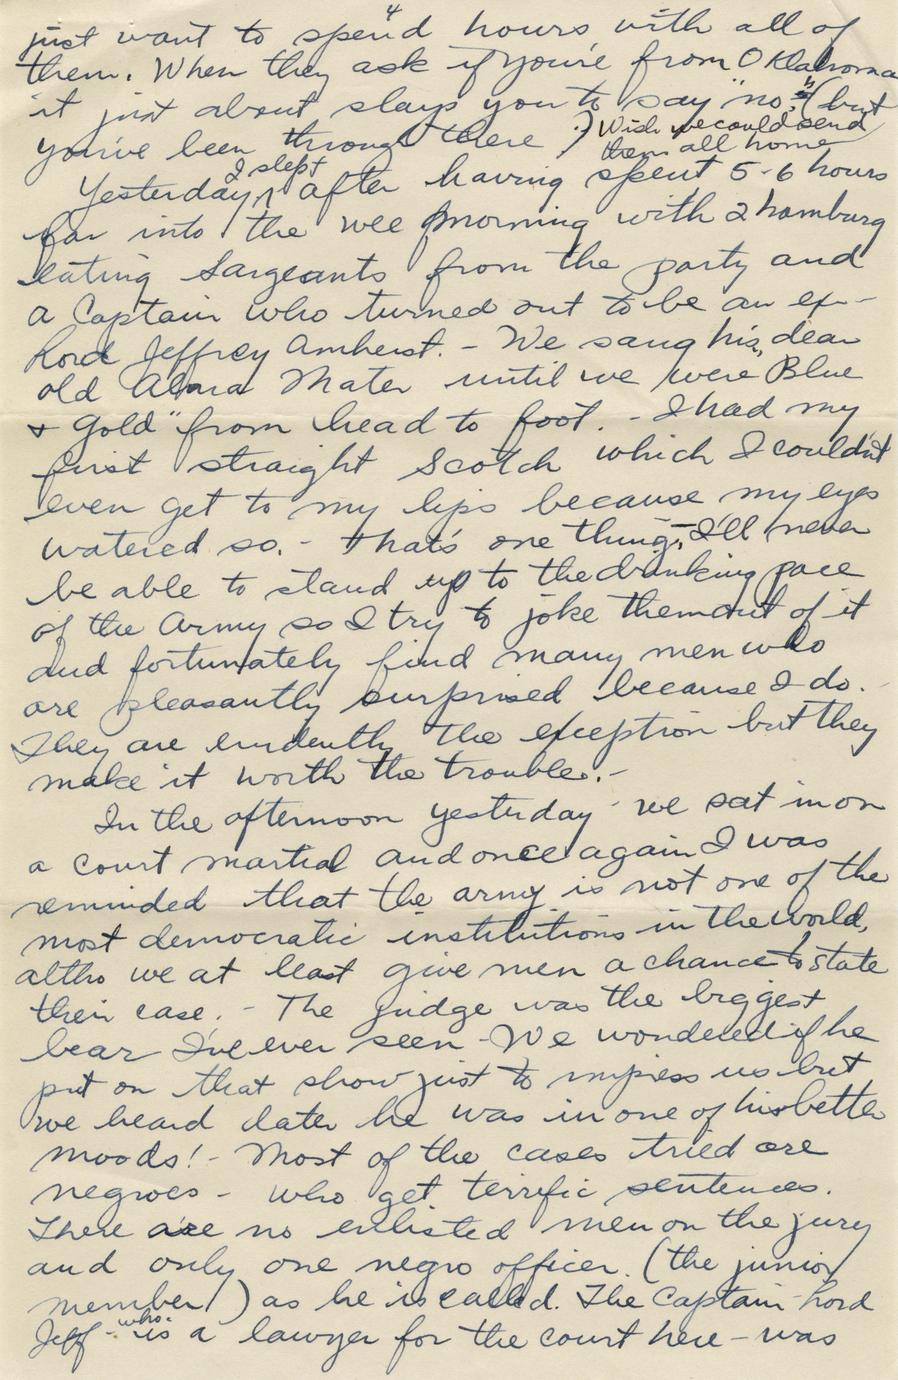 4
just want to spend hours with all of
them. When they ask if you're from Oklahoma
it just about slays you to say "no," (but
you've been through there :) Wish we could send
them all home
Yesterday, I slept after having spent 5-6 hours
far into the wee morning with 2 hamburg
eating Sargeants from the party and
a Captain who turned out to be an ex-
Lord Jeffrey Amherst. - We sang his, dear
old Alma Mater until we were Blue
+ Gold" from head to foot. - I had my
first straight Scotch which I couldn't
even get to my lips because my eyes
watered so. - That's one thing, I'll never
be able to stand up to the drinking pace
of the Army so I try to joke them out of it
and fortunately find many men who
are pleasantly surprised because I do. -
They are evidently the exception but they
make it worth the trouble. -
In the afternoon yesterday we sat in on
a court martial and once again I was
reminded that the army is not one of the
most democratic institutions in the world,
altho we at least give men a chance to state
their case. - The judge was the biggest
bear I've ever seen - We wondered if he
put on that show just to impress us but
we heard later he was in one of his better
moods! - Most of the cases tried are
negroes - who get terrific sentences.
There are no enlisted men on the jury
and only one negro officer. (the junior
member) as he is called. The Captain - Lord
Jeff - who is a lawyer for the court here - was